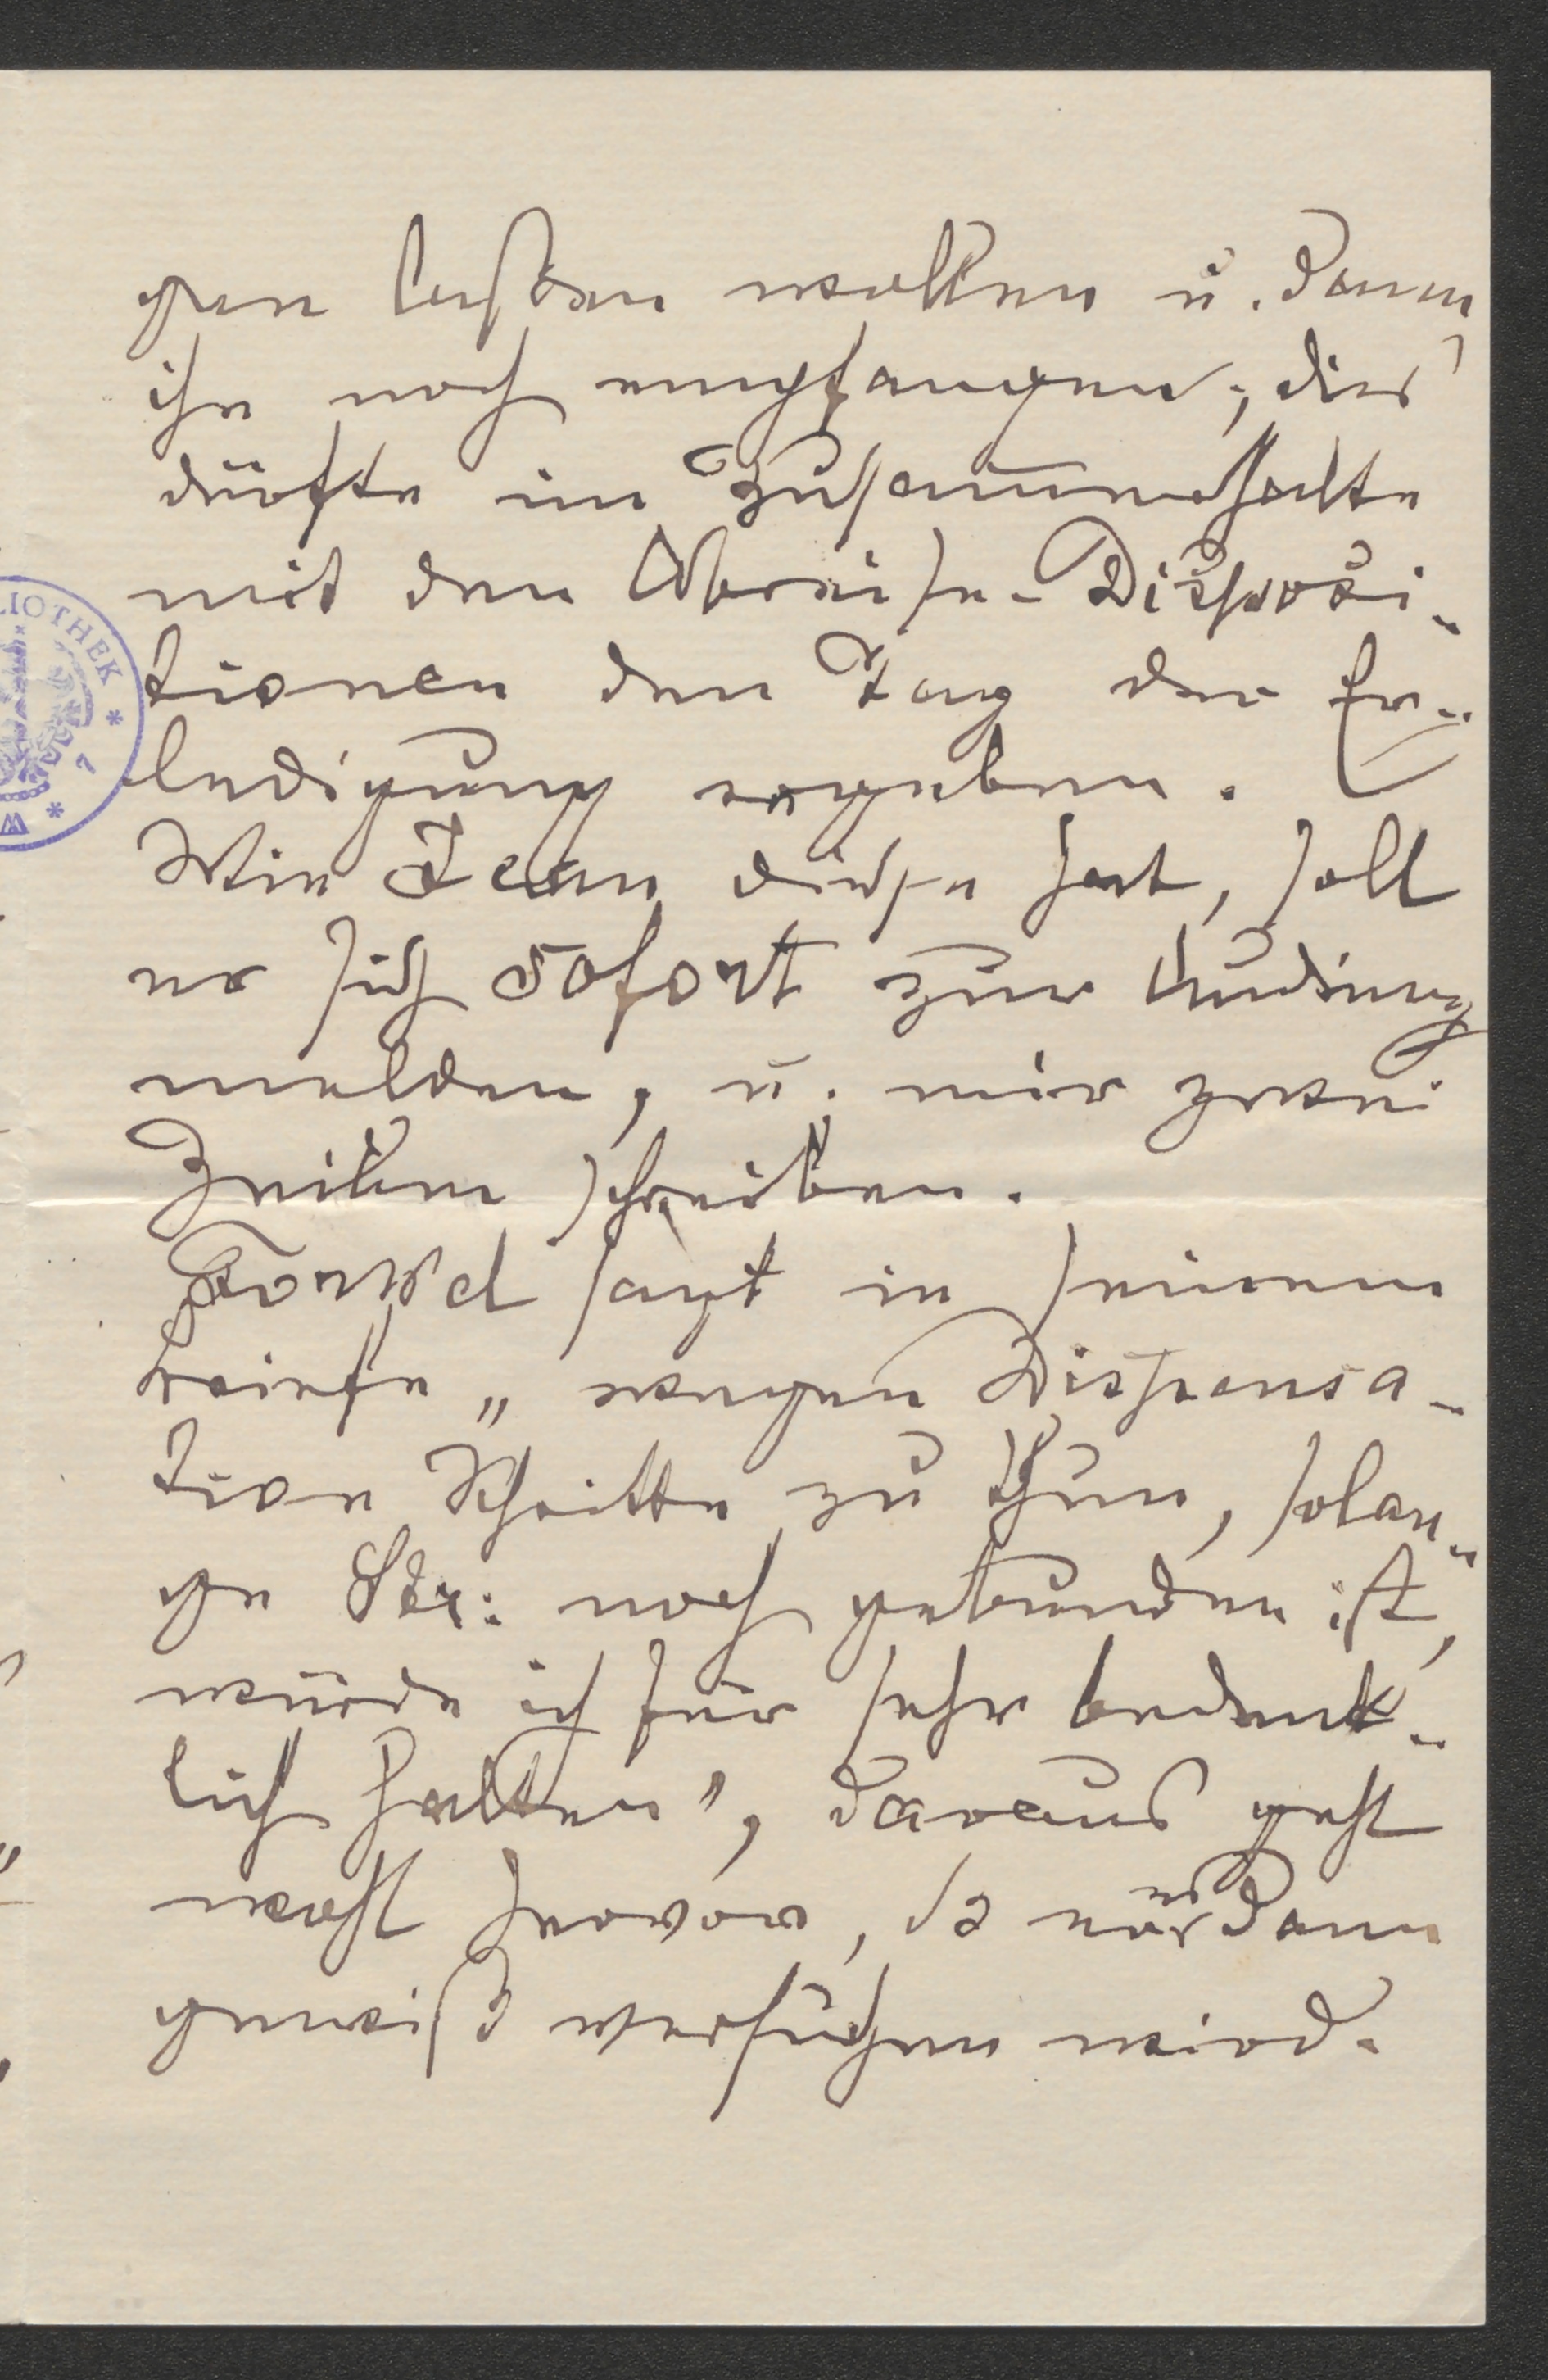 gen laßen wollen u. dann
ihn noch empfangen; dies
dürfte im Zusammenhalte
mit den Abreise-Disposi-
tionen den Tag der Er-
ledigung ergeben.
Wie Jean diese hat, soll
er sich sofort zur Audienz
melden, u. mir zwei
Zeilen schreiben.
sagt in seinem
Briefe „wegen Dispensa-
tion Schritte zu thun, solan-
ge Str: noch gebunden ist,
würde ich für sehr bedenk-
lich halten", daraus geht
wohl hervor, dß er es dann
gewiß versuchen wird.
LIOTHEK * 7 * W